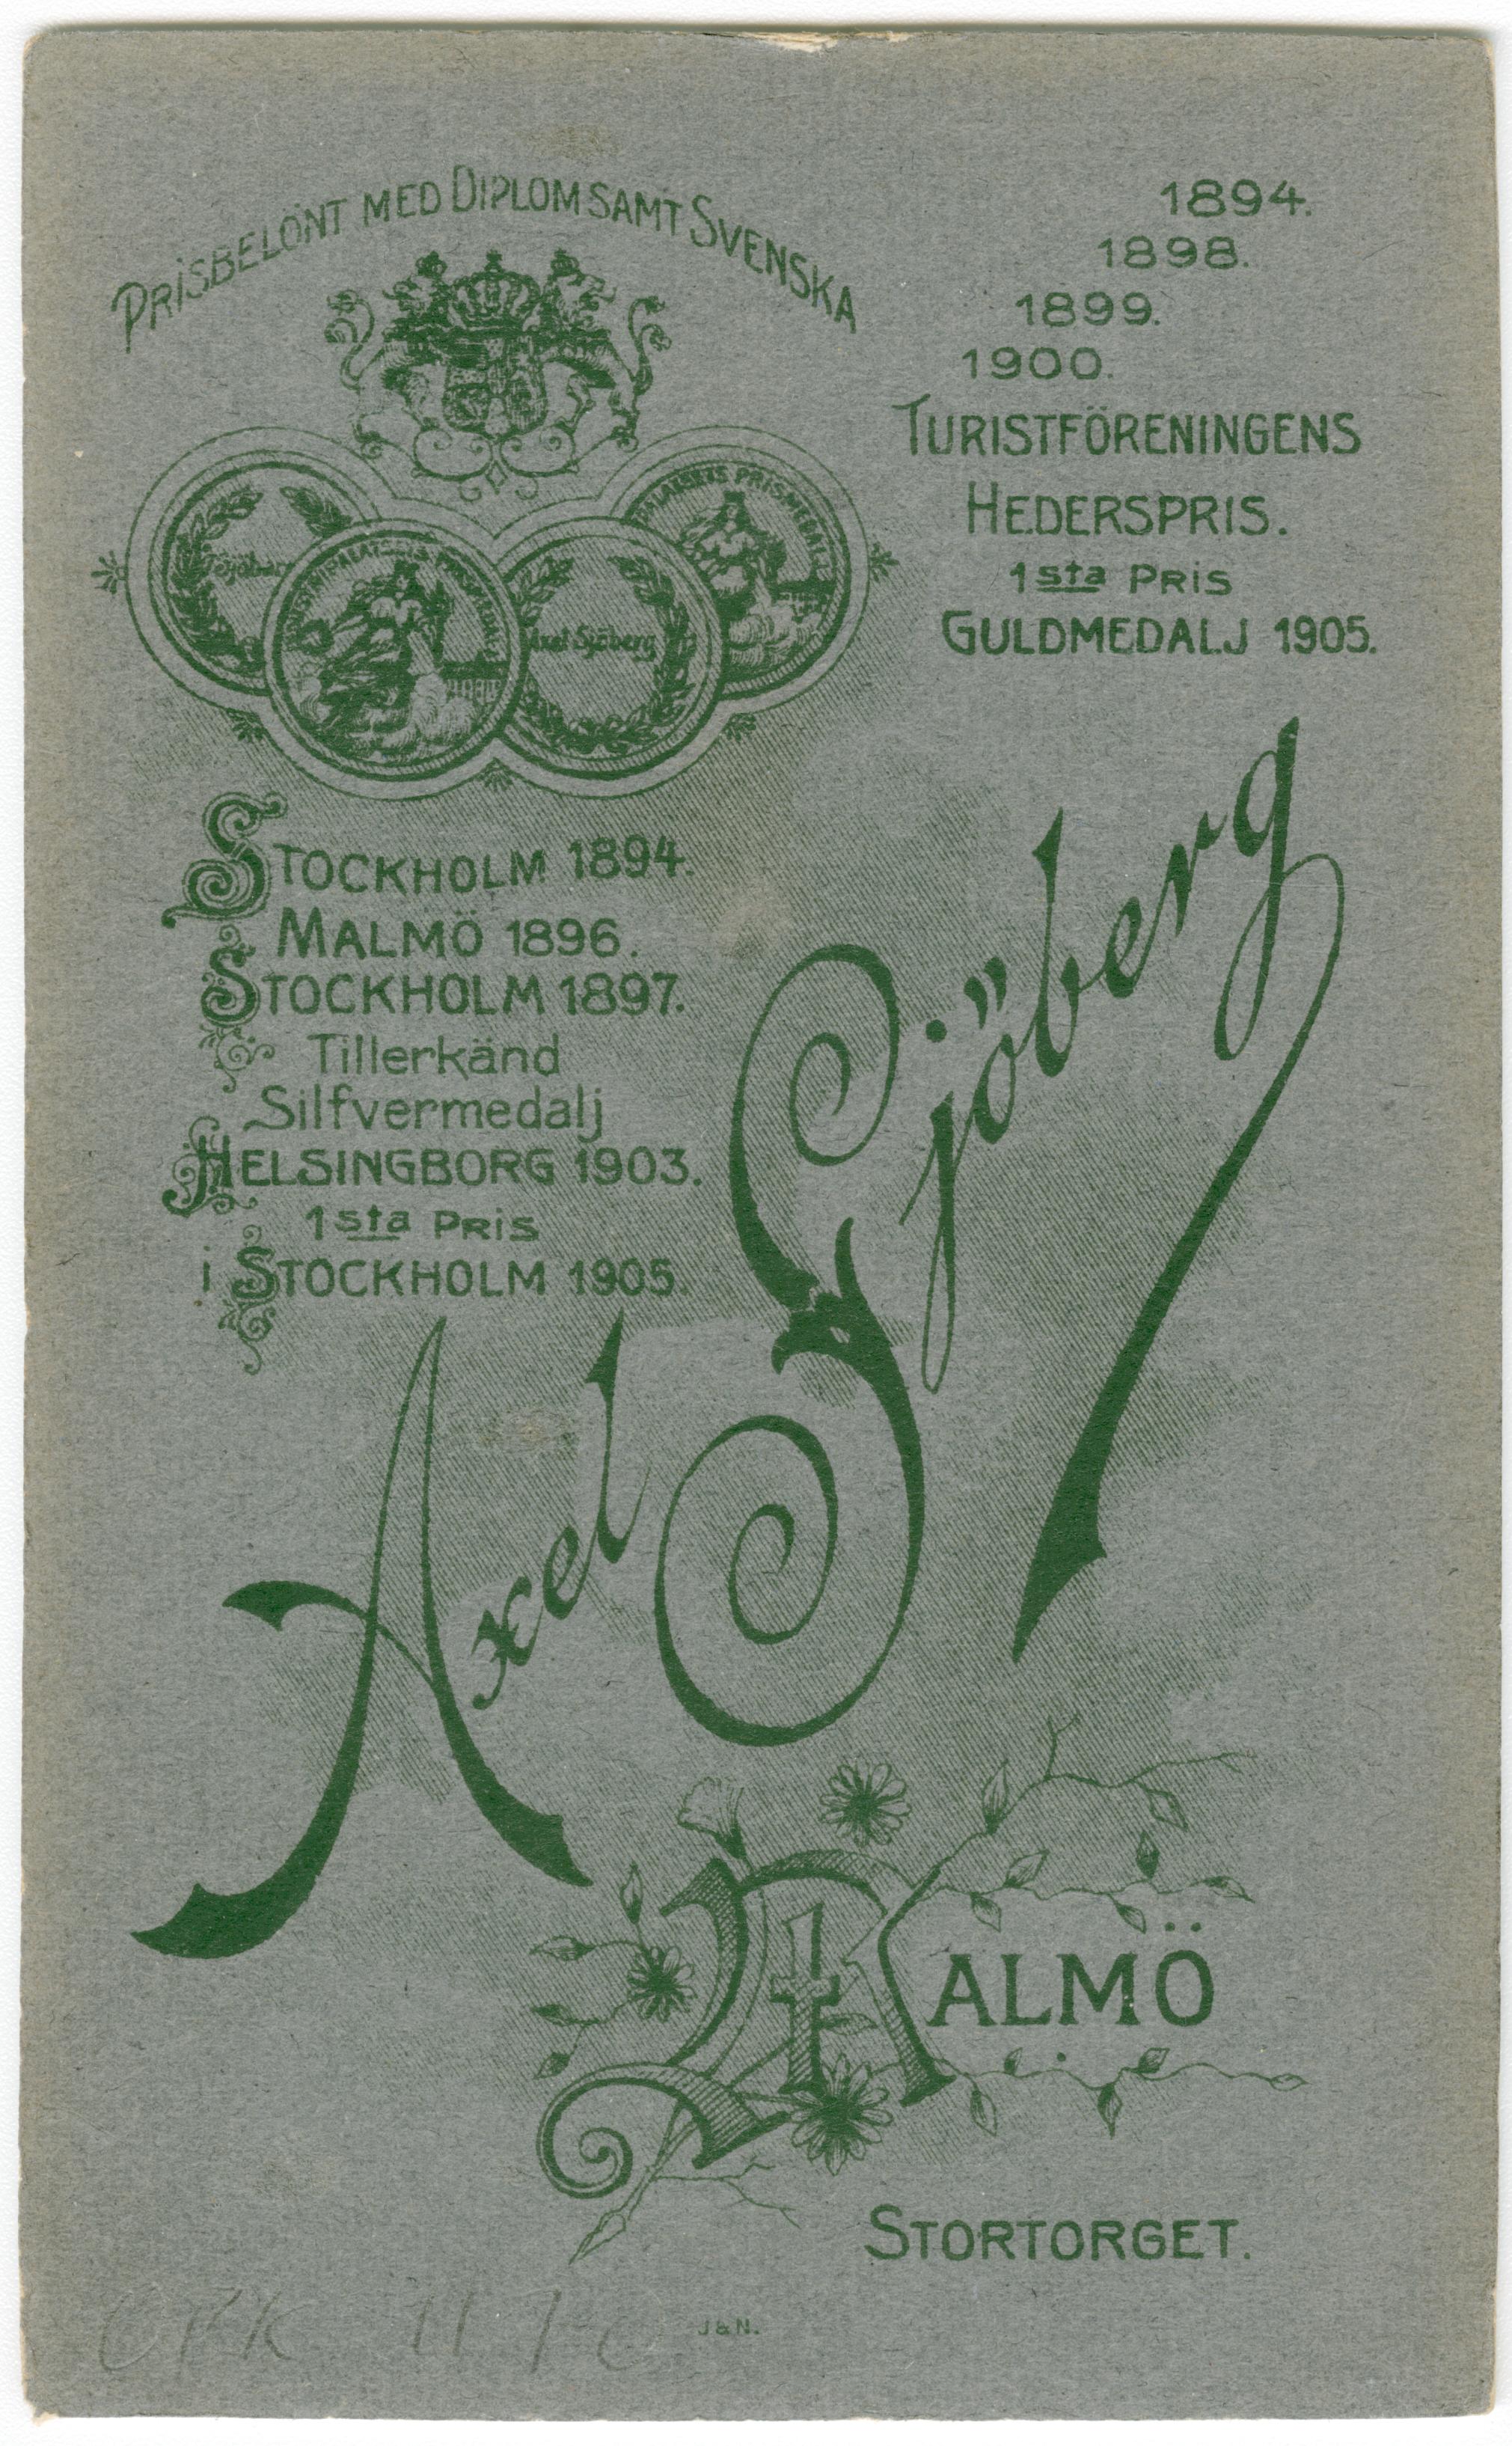 PRISBELÖNT MED DIPLOM SAMT SVENSKA
1894.
1898.
1899.
1900.
TURISTFÖRENINGENS
HEDERSPRIS.
1sta PRIS
GULDMEDALJ 1905.
Sjöberg
Axel Sjöberg
PRISMEDALJ
STOCKHOLM 1894.
MALMÖ 1896.
STOCKHOLM 1897.
Tillerkänd
Silfvermedalj
HELSINGBORG 1903.
1sta PRIS
i STOCKHOLM 1905.
Axel Sjöberg
MALMÖ
STORTORGET.
J & N.